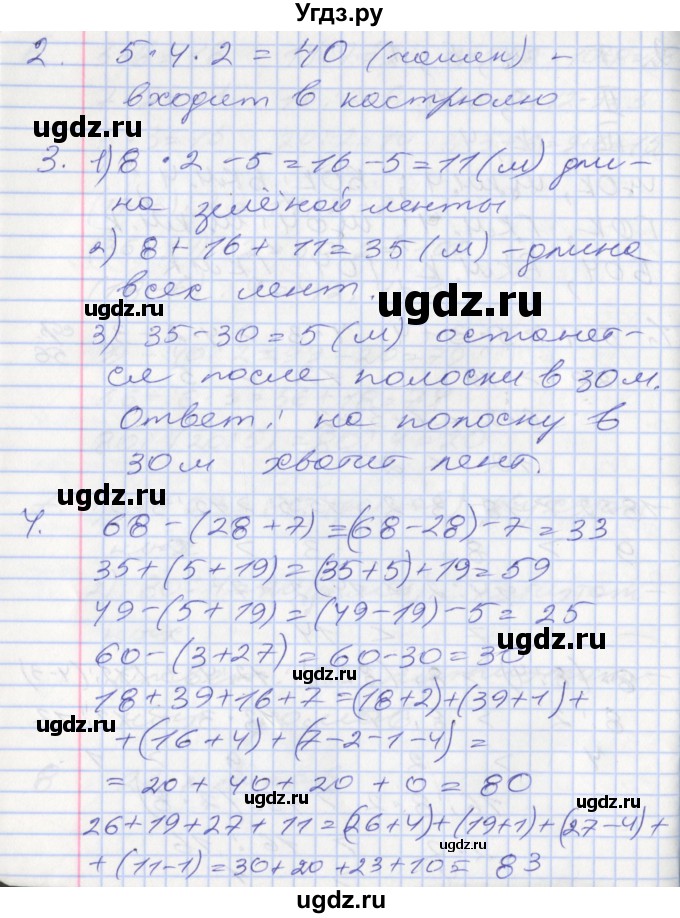 Угдз.ру
2. 5·4·2 = 40 (чашек) -
входит в кастрюлю
ugdz.ru
3. 1) 8·2-5=16-5=11(м) дли-
на зелёной ленты
ugdz.ru
2) 8+16+11=35(м)-длина
всех лент.
ugdz.ru
ugdz.ru
3) 35-30=5(м) останет-
ся после полоски в 30м.
Ответ: на полоску в
30м хватит лент.
ugdz.ru
ugdz.ru
4. 68-(28+7)=(68-28)-7=33
35+(5+19)=(35+5)+19=59
49-(5+19)=(49-19)-5=25
ugdz.ru
60-(3+27)=60-30=30
18+39+16+7=(18+2)+(39+1)+
+(16+4)+(7-2-1-4)=
=20+40+20+0=80
ugdz.ru
26+19+27+11=(26+4)+(19+1)+(27-4)+
ugdz.ru
+(11-1)=30+20+23+10=83
ugdz.ru